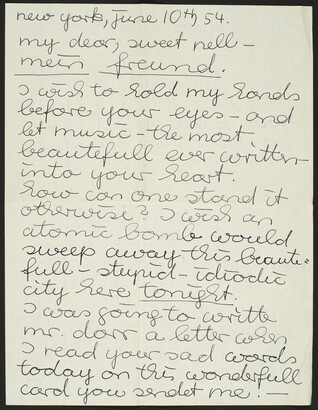 new york, june 10th 54.
my dear, sweet nell –
mein freund.
I wish to hold my hands
before your eyes – and
let music – the most
beautefull ever written –
into your heart.
how can one stand it
otherwise? I wish an
atomic bomb would
sweep away this beaute=
full – stupid – idiodic
city here tonight.
I was going to writte
mr. dorr a letter when
I read your sad words
today on this wonderfull
card you sendet me. –